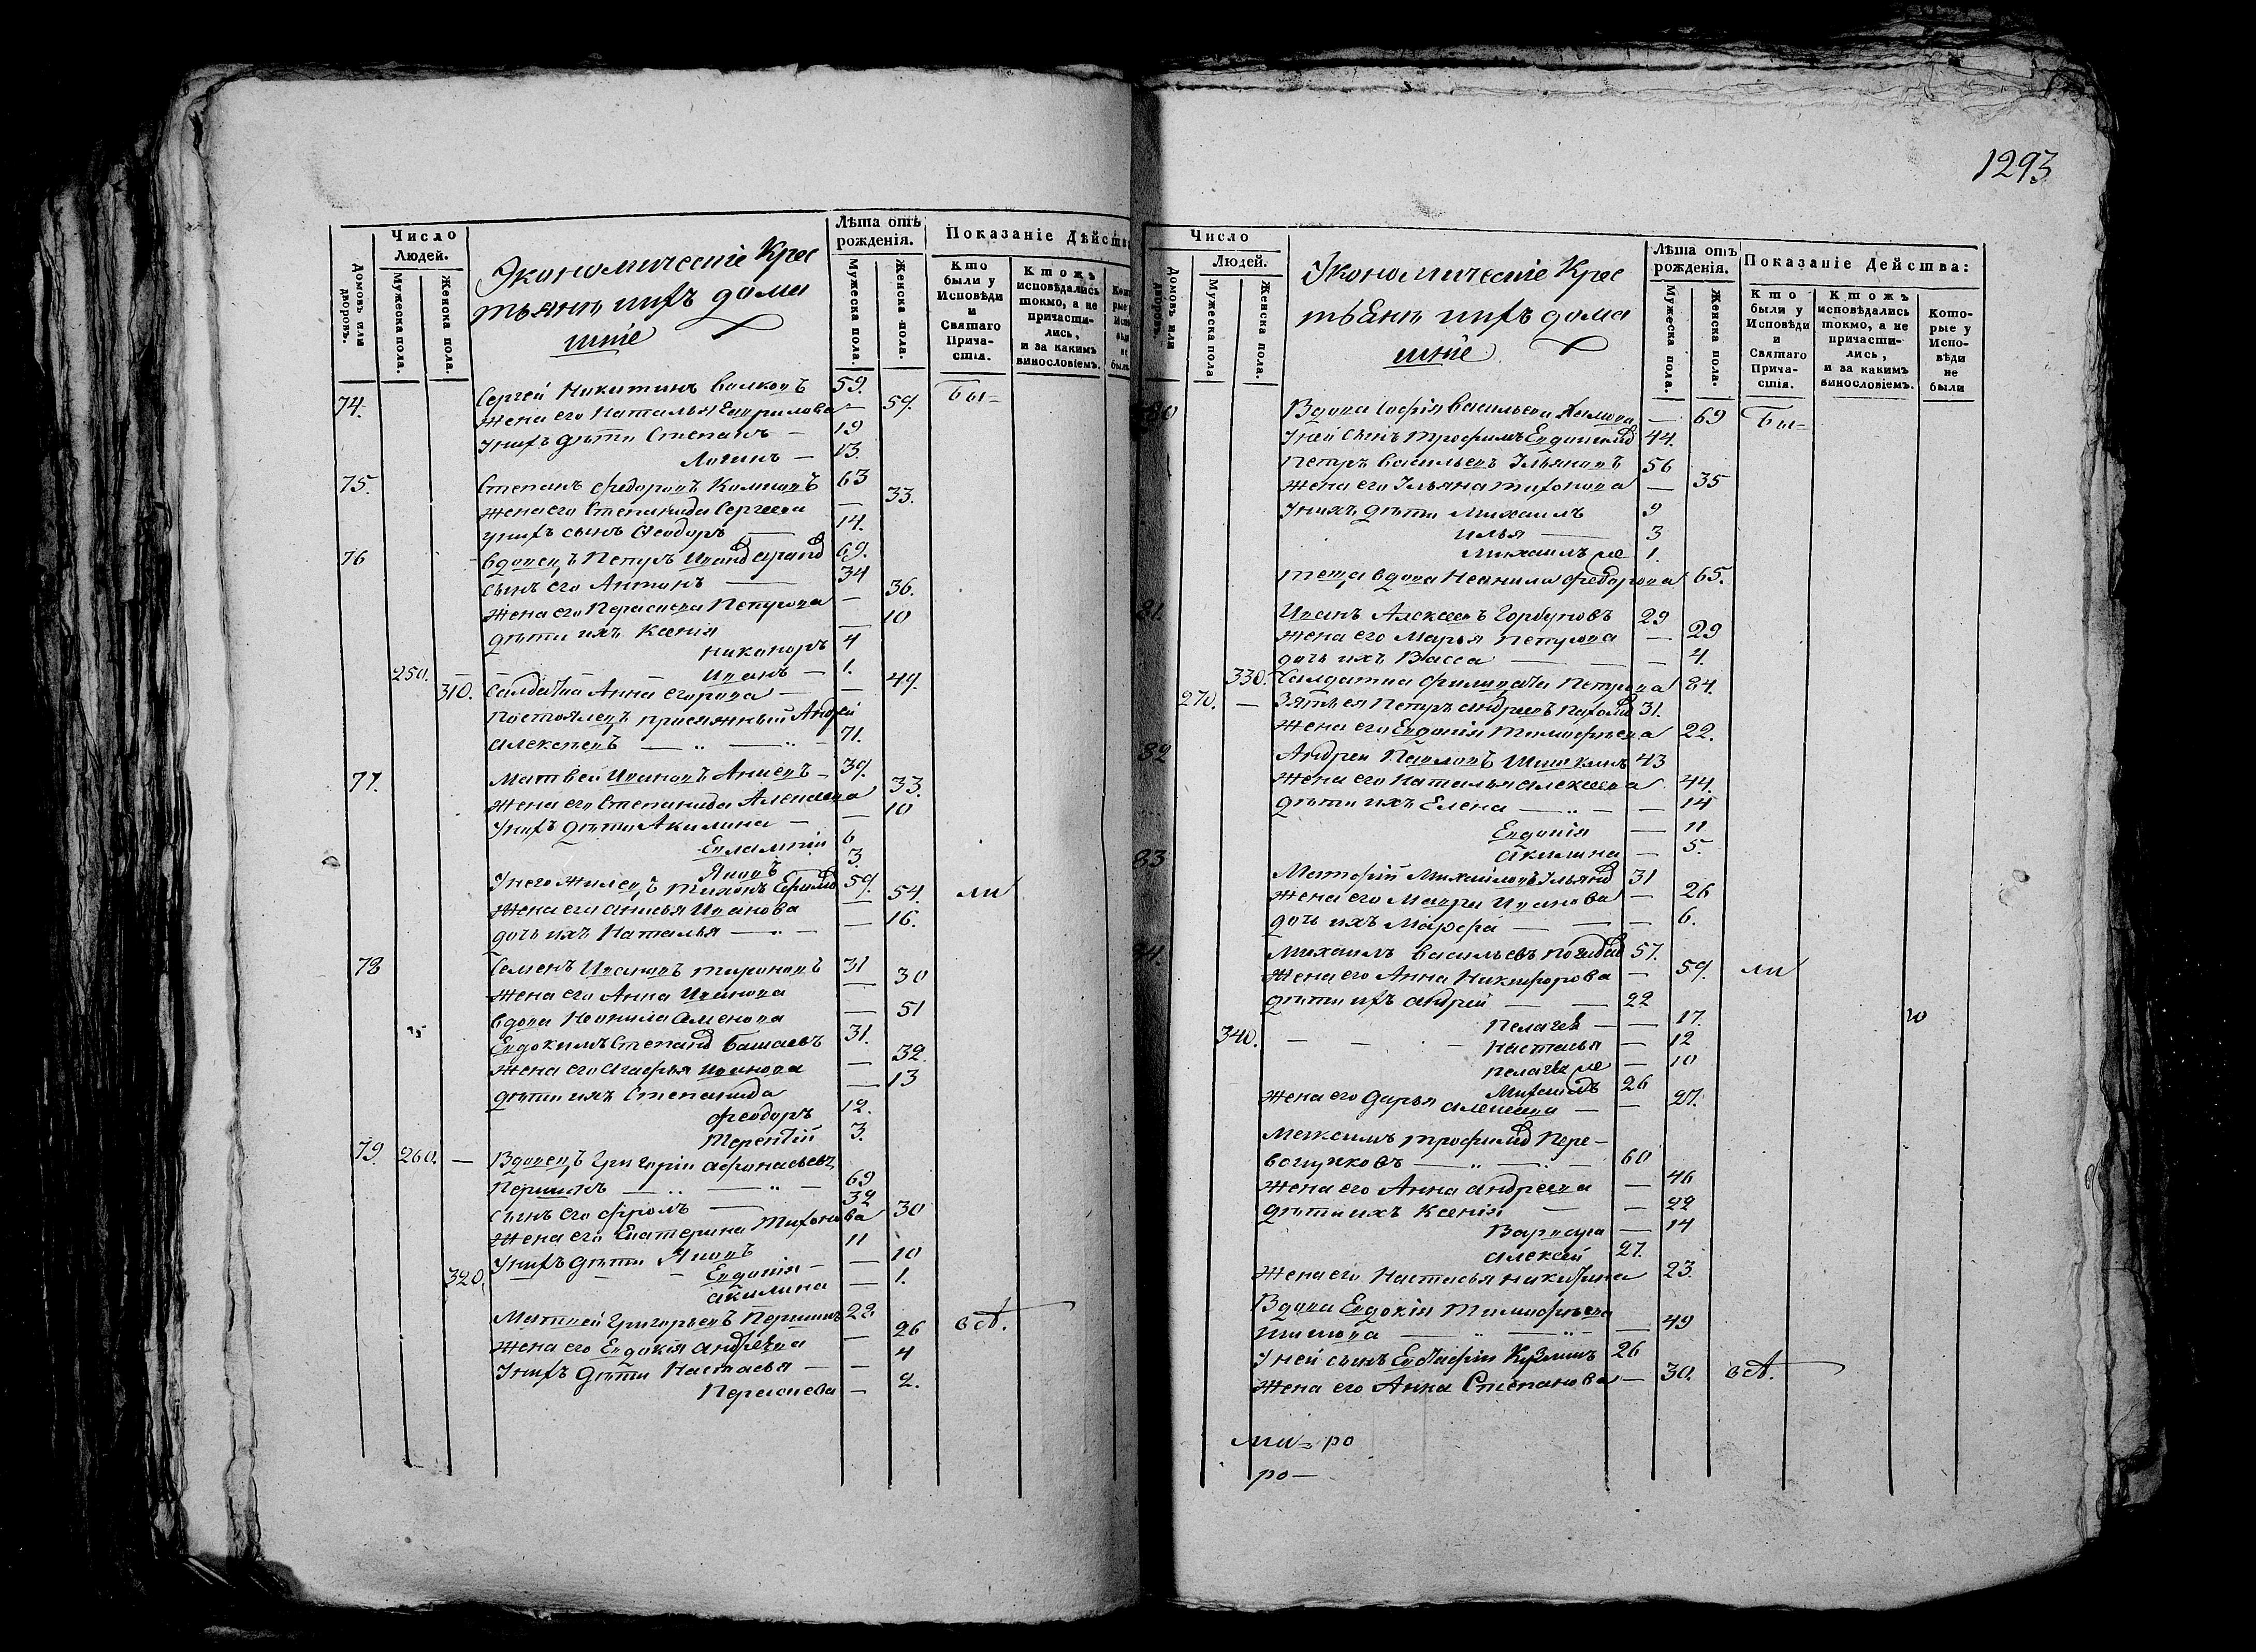 1293
Число
Людей.
Домовъ или дворовъ.
Мужеска пола.
Женска пола.
Экономическіе Крес
тьяне ихъ дома
шніе
Лѣта отъ
рожденія.
Мужеска пола.
Женска пола.
Показаніе Дѣйства
Кто
были у
Исповѣди
и
Святаго
Прича-
стія.
Ктожъ
исповѣдались
токмо, а не
причасти-
лись,
и за какимъ
винословіемъ.
74. Сергей Никитинъ Волковъ 59.
жена его Наталья Гаврилова — 59. Бы=
У нихъ дѣти Степанъ — 19
Логинъ — 13.
75. Степанъ Федоровъ 63
жена его Степанида Сергеева — 33.
у нихъ сынъ Феодоръ — 14.
76 вдовецъ Петръ 69.
сынъ его Антонъ — 34
жена его Параскева Петрова — 36.
дѣти ихъ Ксенія — 10
Никаноръ 4
250. — — — Иванъ — 1.
310. Салдатка Анна Егорова — — 49.
Постоялецъ присяжный Андрей
Алексѣевъ — „ — „ — 71.
77. Матвей Ивановъ 39.
жена его Степанида Алексеева 33.
У нихъ дѣти Акилина — — 10
Евлампій 6
Яковъ 3.
У него жилецъ Тихонъ 59. ли
жена его Анисья Иванова — 54.
дочь ихъ Наталья — „ — — 16.
78 Семенъ Ивановъ Мироновъ 31
жена его Анна Иванова — 30
вдова Неонила Семенова — 51
Евдокимъ Степановъ Башаевъ 31.
жена его Агафья Иванова — 32.
дѣти ихъ Степанида — 13
Феодоръ 12.
Терентій 3.
79. 260. — Вдовецъ Григорій Афонасьевъ
Першинъ — „ — „ — 69
сынъ его Фролъ — 32
жена его Екатерина Тихонова 30
У нихъ дѣти Яковъ 11
320. — — — Евдокія — — 10
Акилина — 1.
Матвей Григорьевъ Першинъ 22
жена его Евдокія Андреева — 26
У нихъ дѣти Настасья — — 4
Парасковья — 2.
Число
Людей.
Домовъ или дворовъ.
Мужеска пола
Женска пола.
Экономическіе Крес
тьяне ихъ дома
шніе
Лѣта отъ
рожденія.
Мужеска пола.
Женска пола.
Показаніе Действа:
Кто
были у
Исповѣди
и
Святаго
Прича-
стія.
Ктожъ
исповѣдались
токмо, а не
причасти-
лись,
и за какимъ
винословіемъ.
Кото-
рые у
Испо-
вѣди
не
были
80 Вдова Софія Васильева — 69 Бы=
У ней сынъ Трофимъ 44.
Петръ Васильевъ Ульяновъ 56
жена его Ульяна Тихонова — 35
У нихъ дѣти Михаилъ 9
Илья — 3
Михаилъ же 1.
теща вдова Неонила Федорова 65.
81. Иванъ Алексеевъ Горбуновъ 29
жена его Марья Петрова — 29
дочь ихъ Васса — — — 4.
330. Салдатка Филицата Петрова 84.
270. — Зять ея Петръ Андреевъ 31.
жена его Евдокія Тимофѣева 22.
82 Андрей Павловъ Шишкинъ 43
жена его Наталья Алексеева 44.
дѣти ихъ Елена — „ — — 14
Евдокія — 11
Акилина — 5.
83 Матфій Михайловъ Ульяновъ 31
жена его Мавра Иванова — 26
дочь ихъ Марфа — — — 6.
84. Михаилъ Васильевъ 57.
жена его Анна Никифорова — 59. ли
дѣти ихъ Андрей — — 22
Пелагея — — 17.
340. — — — Настасья — 12
Пелагея же — 10
Михаилъ 26
жена его Дарья Алексеева — — 27.
Максимъ Трофимовъ Пере-
вощиковъ — „ — „ — 60
жена его Анна Андреева — 46
дѣти ихъ Ксенія — — 22
Варвара — 14
Алексей 27.
жена его Настасья Никитина 23.
Вдова Евдокія Тимофѣева
— „ — „ — 49
У ней сынъ Евстафій Кузминъ 26
жена его Анна Степанова — 30.